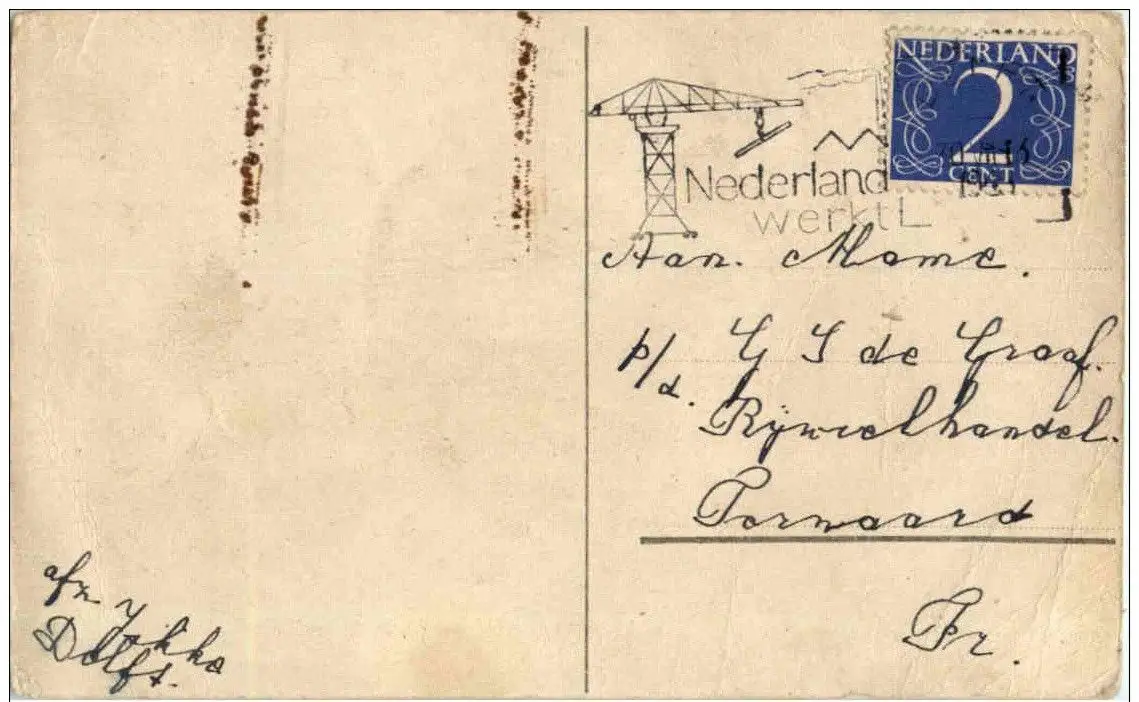 NEDERLAND
2
CENT
Nederland
werkt
Aan. Mame.
p/a. G S de Graaf.
Rijwielhandel.
Ternaard
Fr.
afz Jokke
Delft.